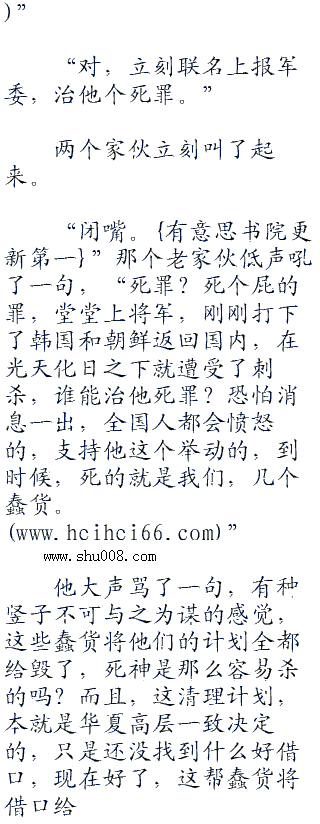 )”
“对，立刻联名上报军
委，治他个死罪。”
两个家伙立刻叫了起
来。
“闭嘴。{有意思书院更
新第一}”那个老家伙低声吼
了一句，“死罪？死个屁的
罪，堂堂上将军，刚刚打下
了韩国和朝鲜返回国内，在
光天化日之下就遭受了刺
杀，谁能治他死罪？恐怕消
息一出，全国人都会愤怒
的，支持他这个举动的，到
时候，死的就是我们，几个
蠢货。
(www.hcihci66.com)”
www.shu008.com
他大声骂了一句，有种
竖子不可与之为谋的感觉，
这些蠢货将他们的计划全都
给毁了，死神是那么容易杀
的吗？而且，这清理计划，
本就是华夏高层一致决定
的，只是还没找到什么好借
口，现在好了，这帮蠢货将
借口给